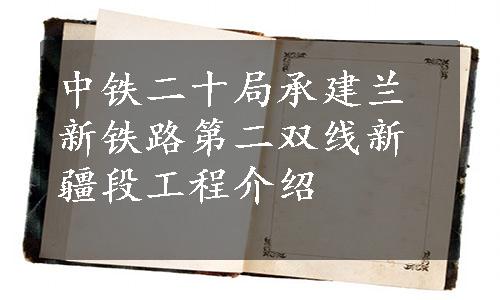 中铁二十局承建兰
新铁路第二双线新
疆段工程介绍